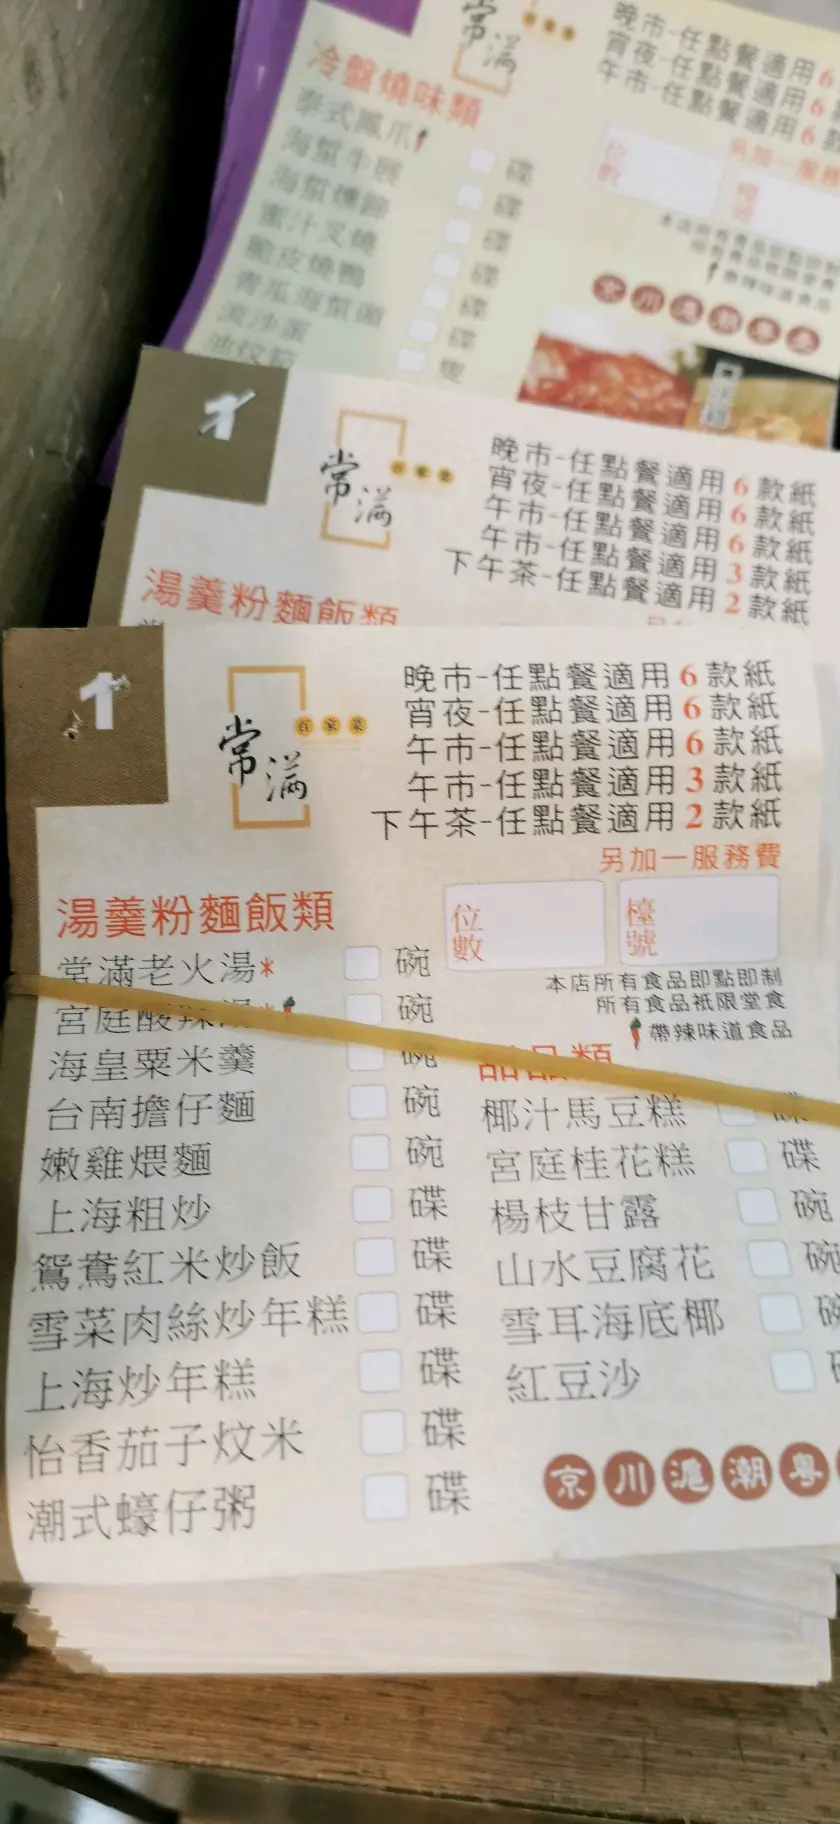 常滿
晚市-任點餐適用6
宵夜-任點餐適用6
午市-任點餐適用6款
另加一服務
冷盤燒味類
泰式鳳爪
碟
海蜇牛𦟌
碟
海蜇燻蹄
碟
蜜汁叉燒
碟
脆皮燒鴨
碟
青瓜海蜇頭
碟
流沙蛋
隻
位數
京川滬潮粵
1
常滿
百家菜
晚市-任點餐適用6款紙
宵夜-任點餐適用6款紙
午市-任點餐適用6款紙
午市-任點餐適用3款紙
下午茶-任點餐適用2款紙
湯羹粉麵飯類
1
常滿
百家菜
晚市-任點餐適用6款紙
宵夜-任點餐適用6款紙
午市-任點餐適用6款紙
午市-任點餐適用3款紙
下午茶-任點餐適用2款紙
另加一服務費
位數
檯號
本店所有食品即點即制
所有食品衹限堂食
帶辣味道食品
湯羹粉麵飯類
常滿老火湯* 碗
宮庭酸辣湯* 碗
海皇粟米羹 碗
台南擔仔麵 碗
嫩雞煨麵 碗
上海粗炒 碟
鴛鴦紅米炒飯 碟
雪菜肉絲炒年糕 碟
上海炒年糕 碟
怡香茄子炆米 碟
潮式蠔仔粥 碟
甜品類
椰汁馬豆糕 碟
宮庭桂花糕 碟
楊枝甘露 碗
山水豆腐花 碗
雪耳海底椰 碗
紅豆沙
京川滬潮粵